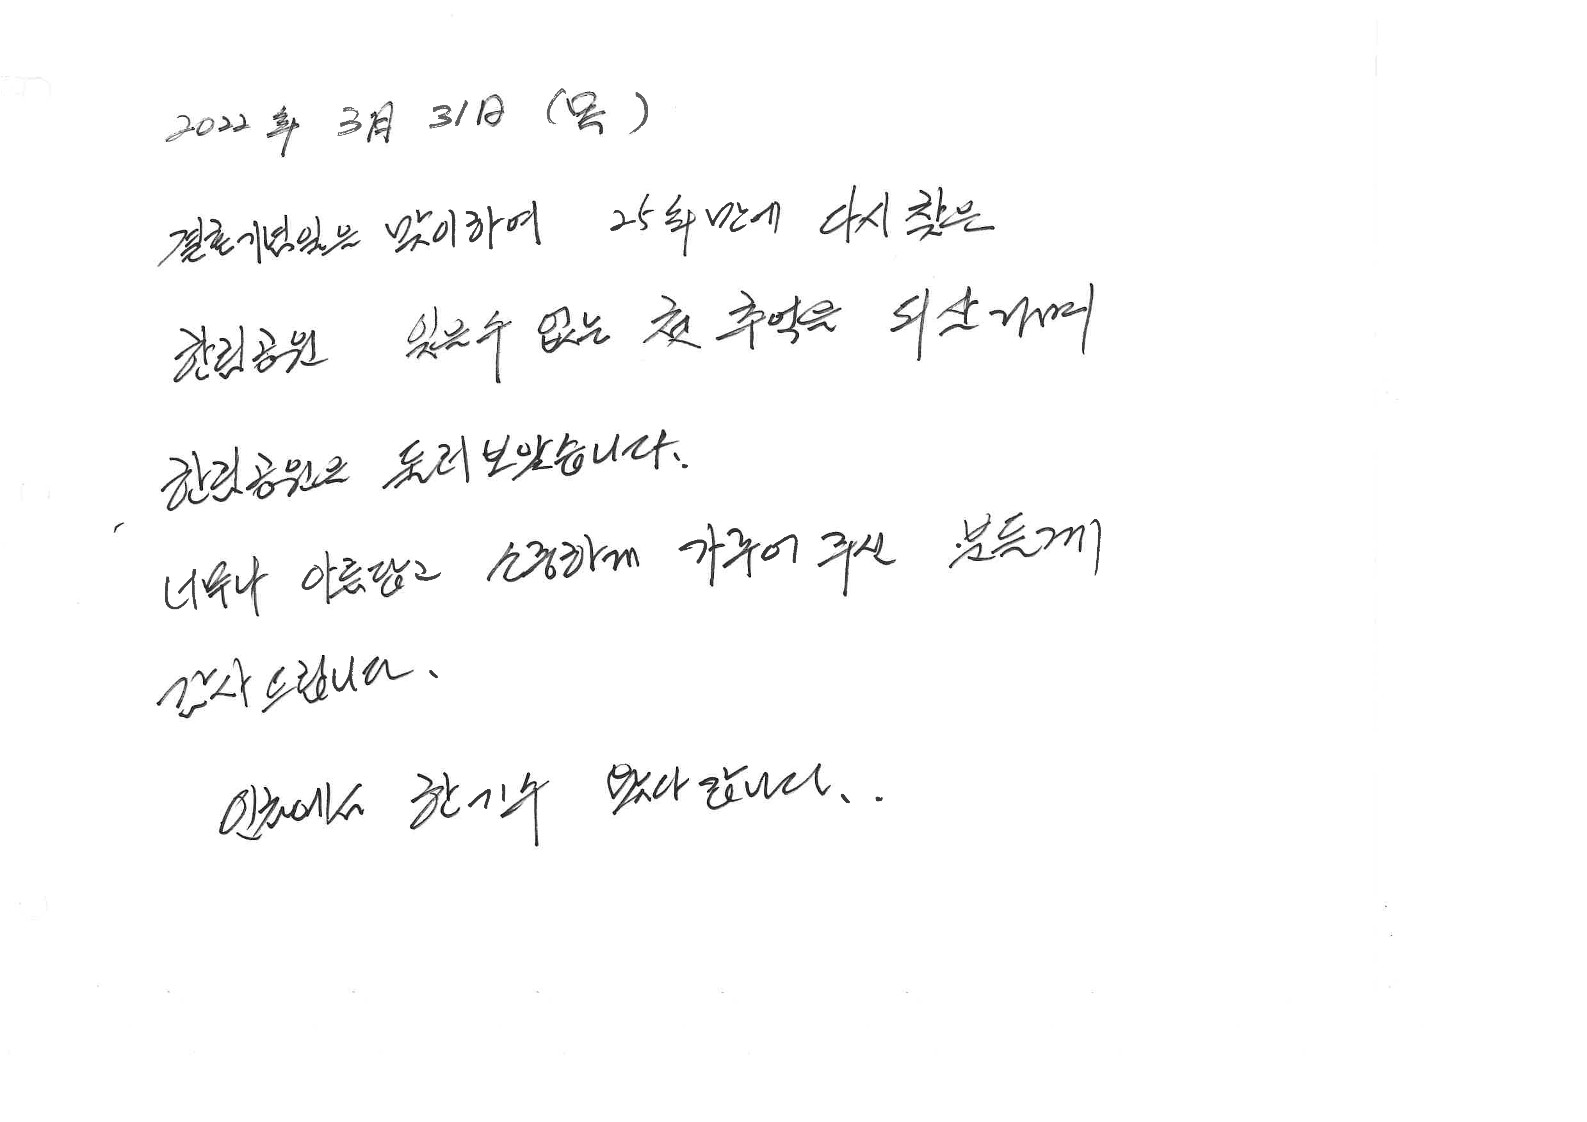 2022年 3月 31日 (목)
결혼기념일을 맞이하여 25年만에 다시 찾은
한림공원 잊을수 없는 첫 추억을 되살리며
한림공원을 둘러보았습니다.
너무나 아름답고 소중하게 가꾸어 주신 분들께
감사드립니다.
인천에서 한기수 왔다 갑니다..